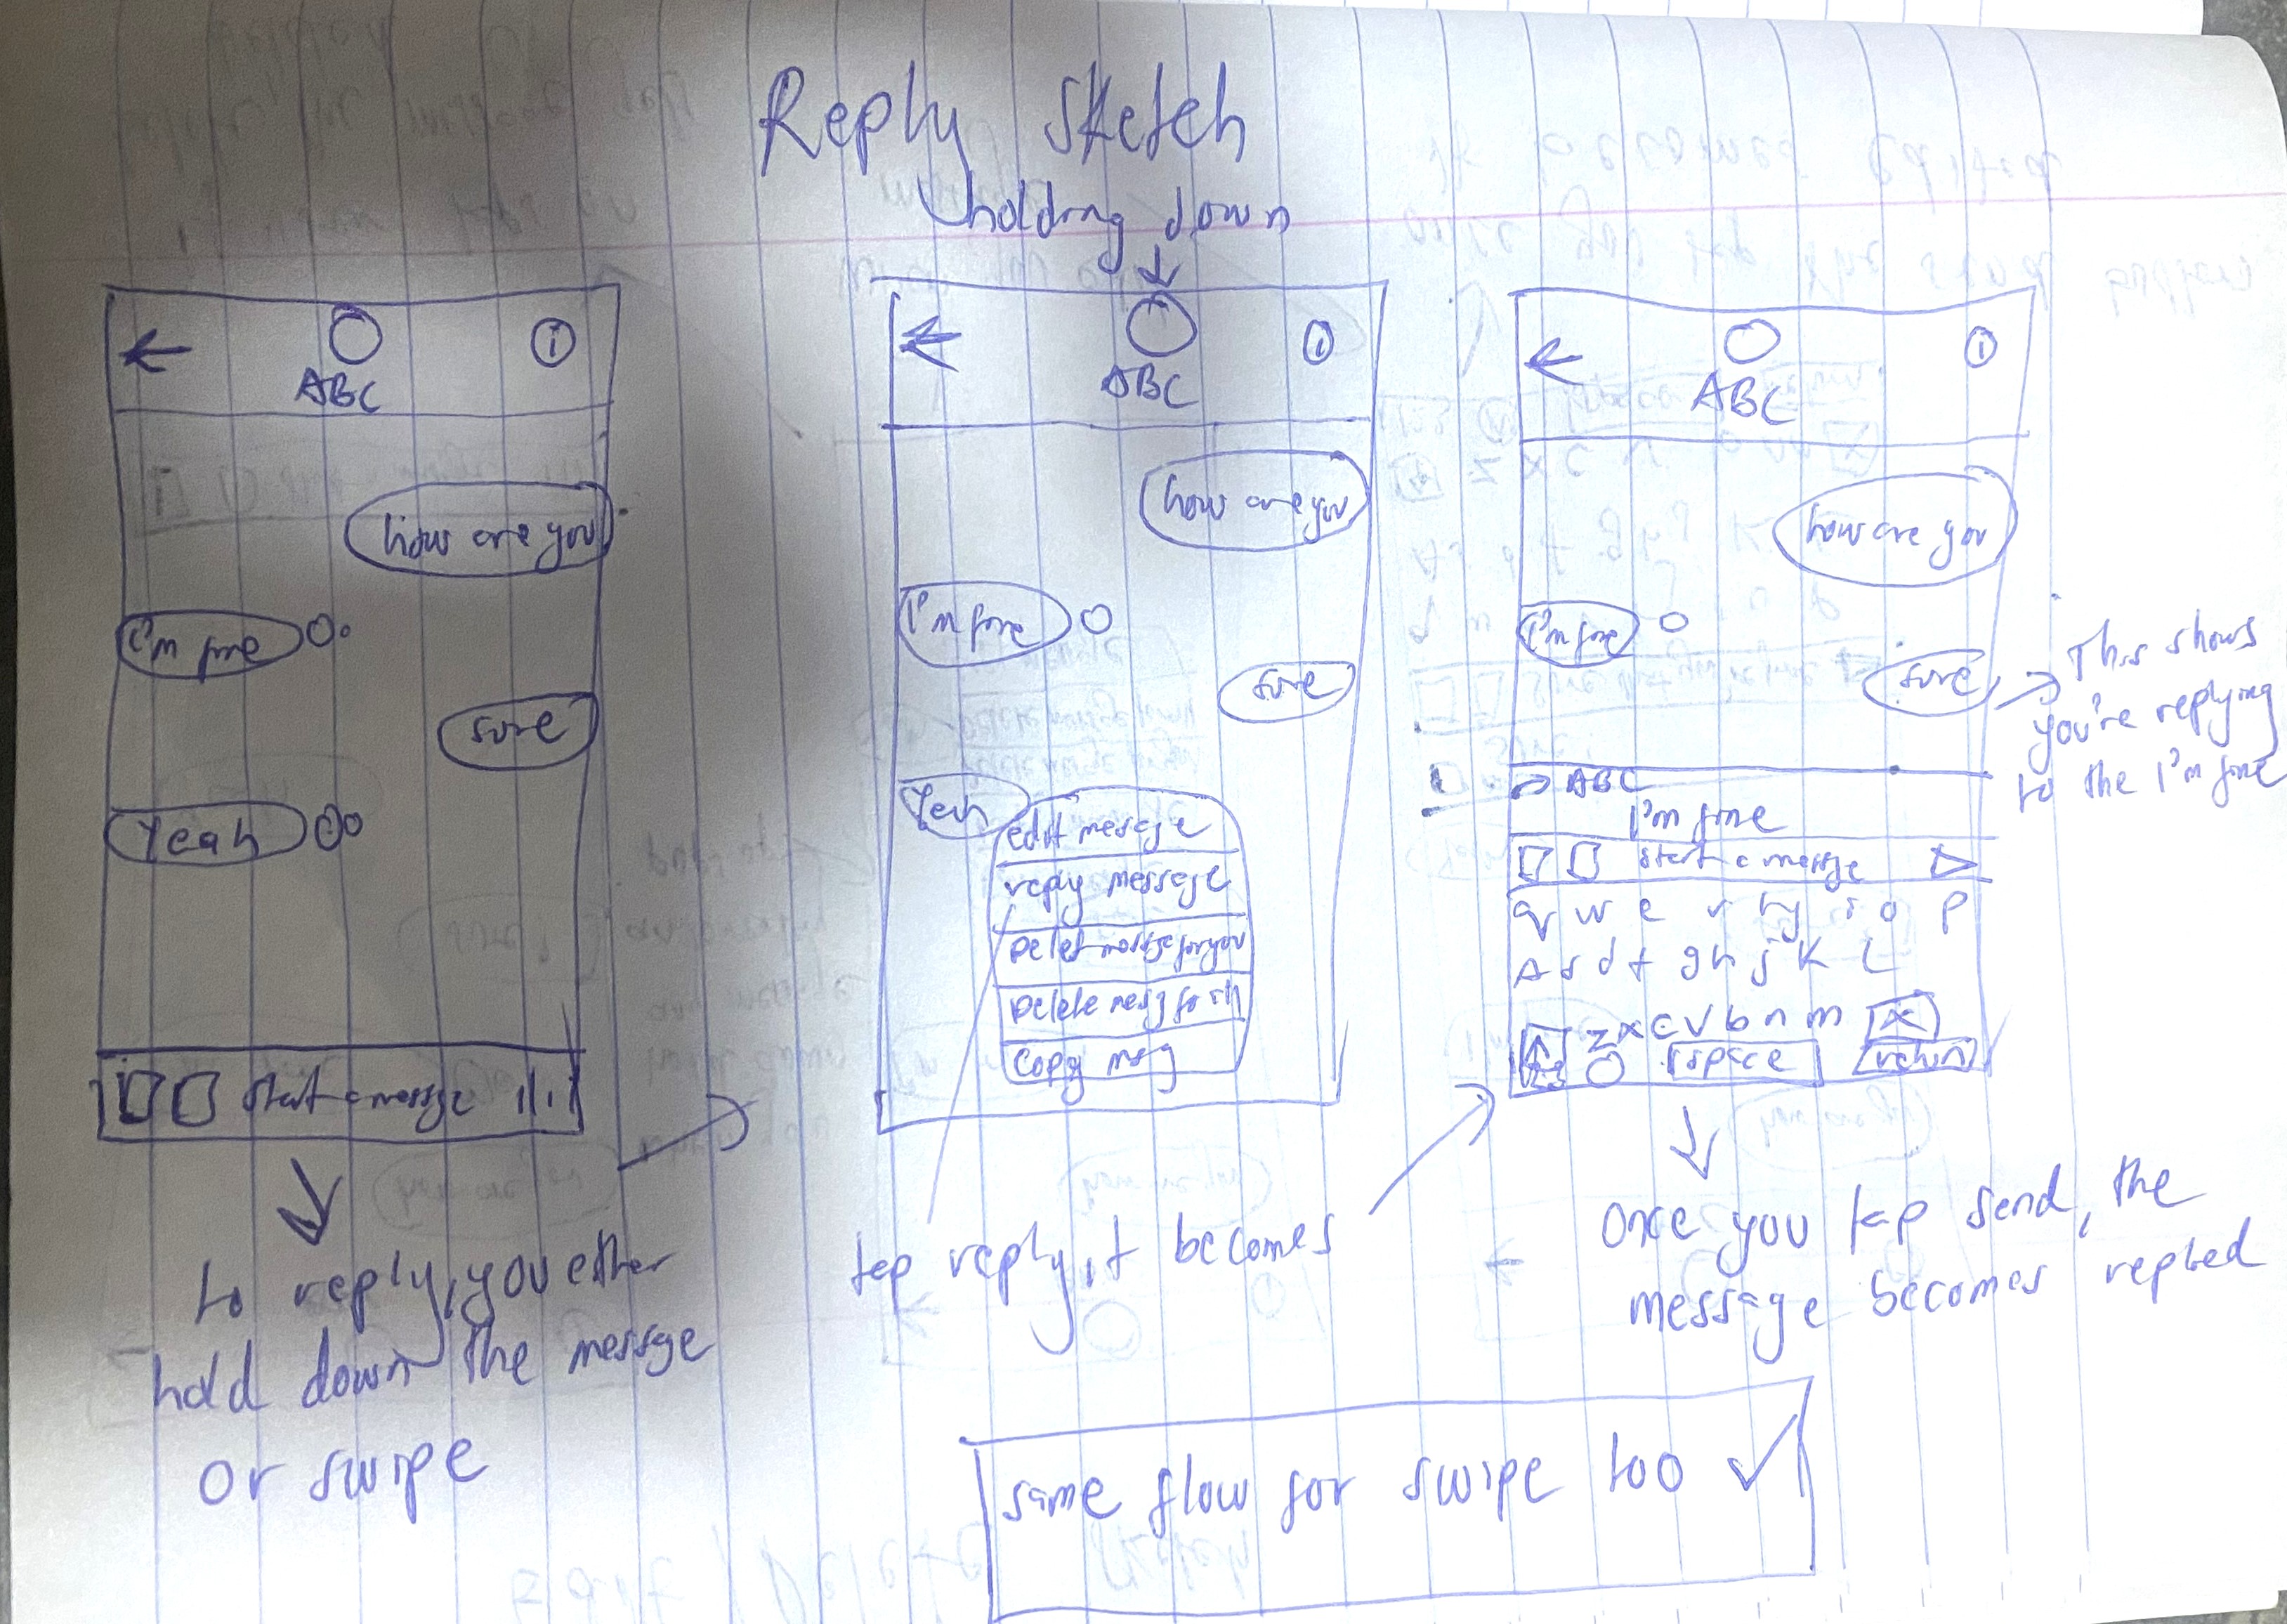 Reply sketch
holding down
ABC
i
how are you
I'm fine
sure
Yeah
Start a messge
to reply, you either
hold down the messge
or swipe
ABC
i
how are you
I'm fine
sure
Yeah
edit messge
reply message
Delete messge for you
Delete messg for all
Copy msg
tap reply, it becomes
ABC
i
how are you
I'm fine
sure
This shows
you're replying
to the I'm fine
ABC
I'm fine
Start a messge
q w e r t y i o p
A s d f g h j k L
z x c v b n m x
space return
Once you tap send, the
message becomes replied
same flow for swipe too